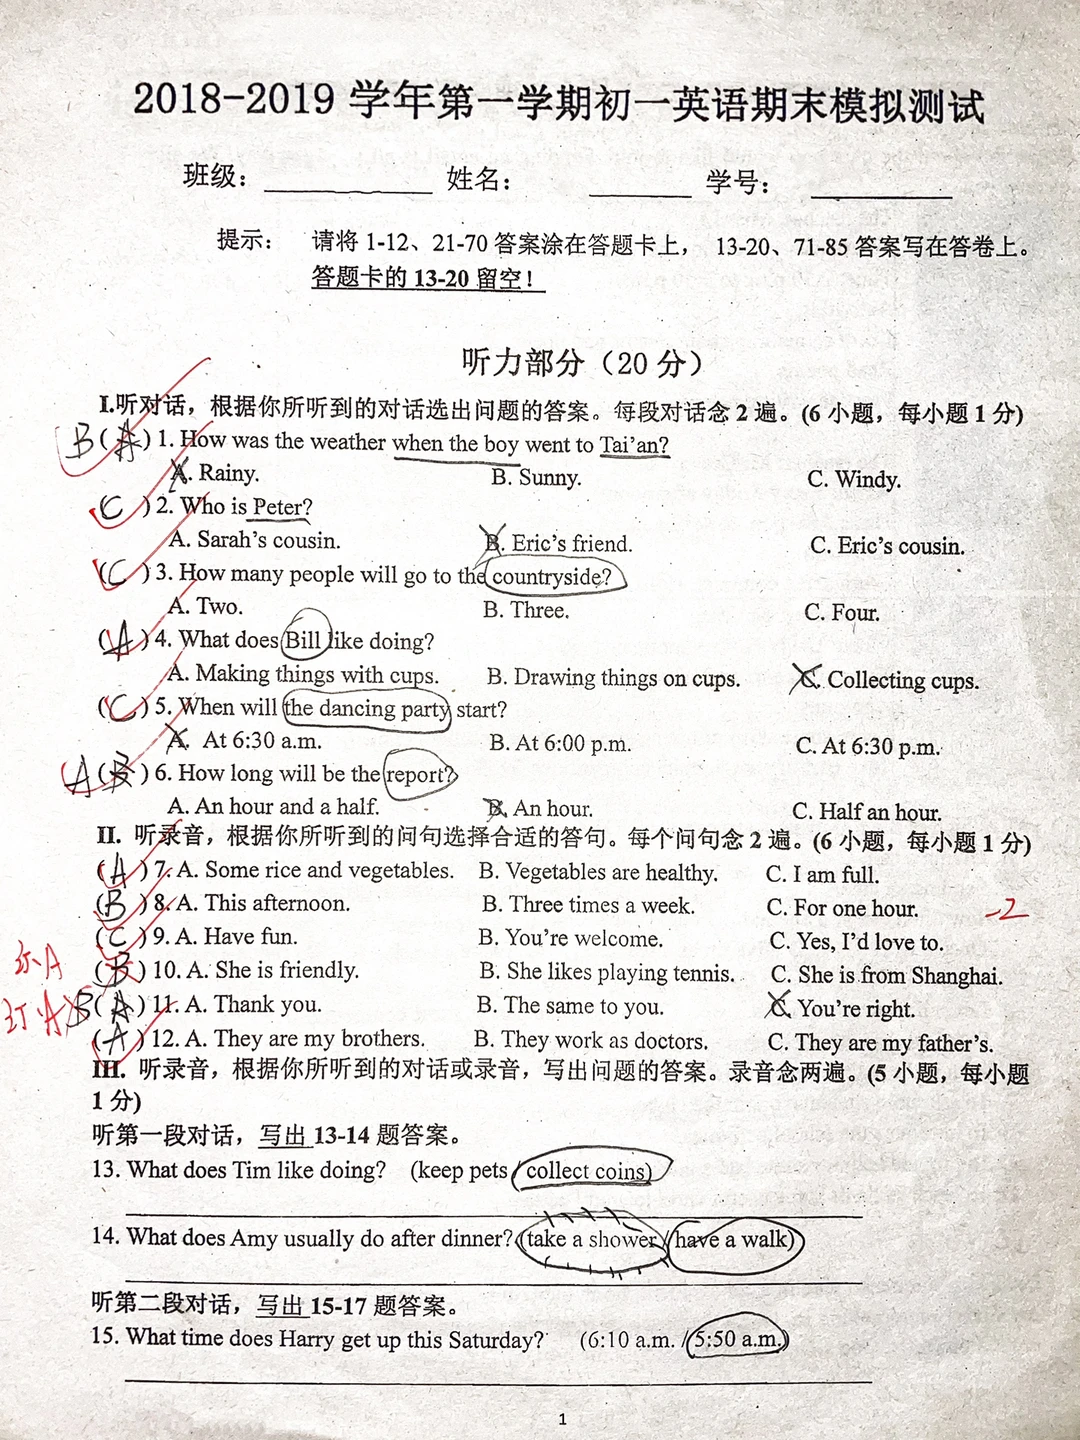 2018-2019 学年第一学期初一英语期末模拟测试
班级： 姓名： 学号：
提示： 请将 1-12、21-70 答案涂在答题卡上， 13-20、71-85 答案写在答卷上。
答题卡的 13-20 留空！
听力部分（20 分）
I.听对话，根据你所听到的对话选出问题的答案。每段对话念 2 遍。(6 小题，每小题 1 分)
B ( A ) 1. How was the weather when the boy went to Tai'an?
A. Rainy. B. Sunny. C. Windy.
( C ) 2. Who is Peter?
A. Sarah's cousin. B. Eric's friend. C. Eric's cousin.
( C ) 3. How many people will go to the countryside?
A. Two. B. Three. C. Four.
( A ) 4. What does Bill like doing?
A. Making things with cups. B. Drawing things on cups. C. Collecting cups.
( C ) 5. When will the dancing party start?
A. At 6:30 a.m. B. At 6:00 p.m. C. At 6:30 p.m.
A ( B ) 6. How long will be the report?
A. An hour and a half. B. An hour. C. Half an hour.
II. 听录音，根据你所听到的问句选择合适的答句。每个问句念 2 遍。(6 小题，每小题 1 分)
( A ) 7. A. Some rice and vegetables. B. Vegetables are healthy. C. I am full.
( B ) 8. A. This afternoon. B. Three times a week. C. For one hour. -2
( C ) 9. A. Have fun. B. You're welcome. C. Yes, I'd love to.
A ( B ) 10. A. She is friendly. B. She likes playing tennis. C. She is from Shanghai.
A B ( A ) 11. A. Thank you. B. The same to you. C. You're right.
( A ) 12. A. They are my brothers. B. They work as doctors. C. They are my father's.
III. 听录音，根据你所听到的对话或录音，写出问题的答案。录音念两遍。(5 小题，每小题
1 分)
听第一段对话，写出 13-14 题答案。
13. What does Tim like doing? (keep pets / collect coins)
14. What does Amy usually do after dinner? (take a shower / have a walk)
听第二段对话，写出 15-17 题答案。
15. What time does Harry get up this Saturday? (6:10 a.m. / 5:50 a.m.)
1